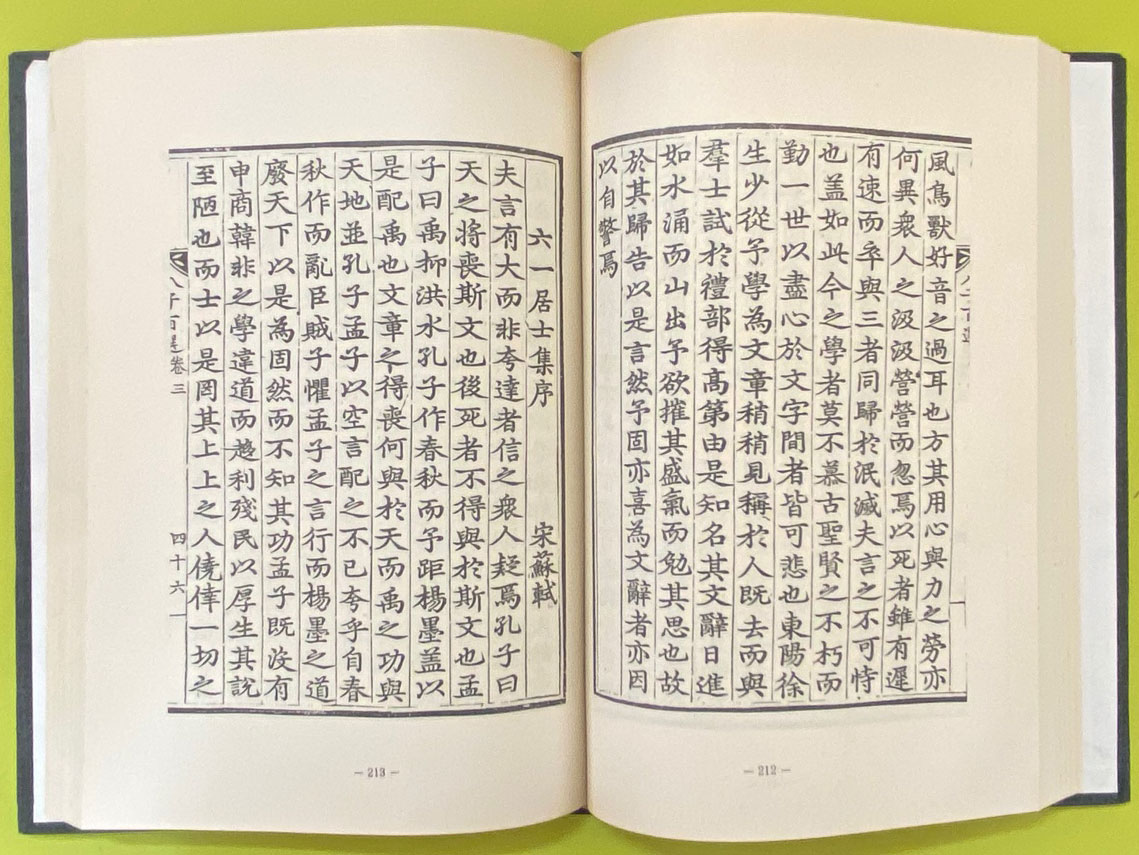 風鳥獸好音之過耳也方其用心與力之勞亦
何異衆人之汲汲營營而忽焉以死者雖有遲
有速而卒與三者同歸於泯滅夫言之不可恃
也盖如此今之學者莫不慕古聖賢之不朽而
勤一世以盡心於文字間者皆可悲也東陽徐
生少從予學為文章稍稍見稱於人既去而與
羣士試於禮部得高第由是知名其文辭日進
如水涌而山出予欲摧其盛氣而勉其思也故
於其歸告以是言然予固亦喜為文辭者亦因
以自警焉
-212-
六一居士集序 宋蘇軾
夫言有大而非夸達者信之衆人疑焉孔子曰
天之將喪斯文也後死者不得與於斯文也孟
子曰禹抑洪水孔子作春秋而予距楊墨盖以
是配禹也文章之得喪何與於天而禹之功與
天地並孔子孟子以空言配之不已夸乎自春
秋作而亂臣賊子懼孟子之言行而楊墨之道
廢天下以是為固然而不知其功孟子既沒有
申商韓非之學違道而趨利殘民以厚生其說
至陋也而士以是罔其上上之人僥倖一切之
八子百選卷三 四十六
-213-